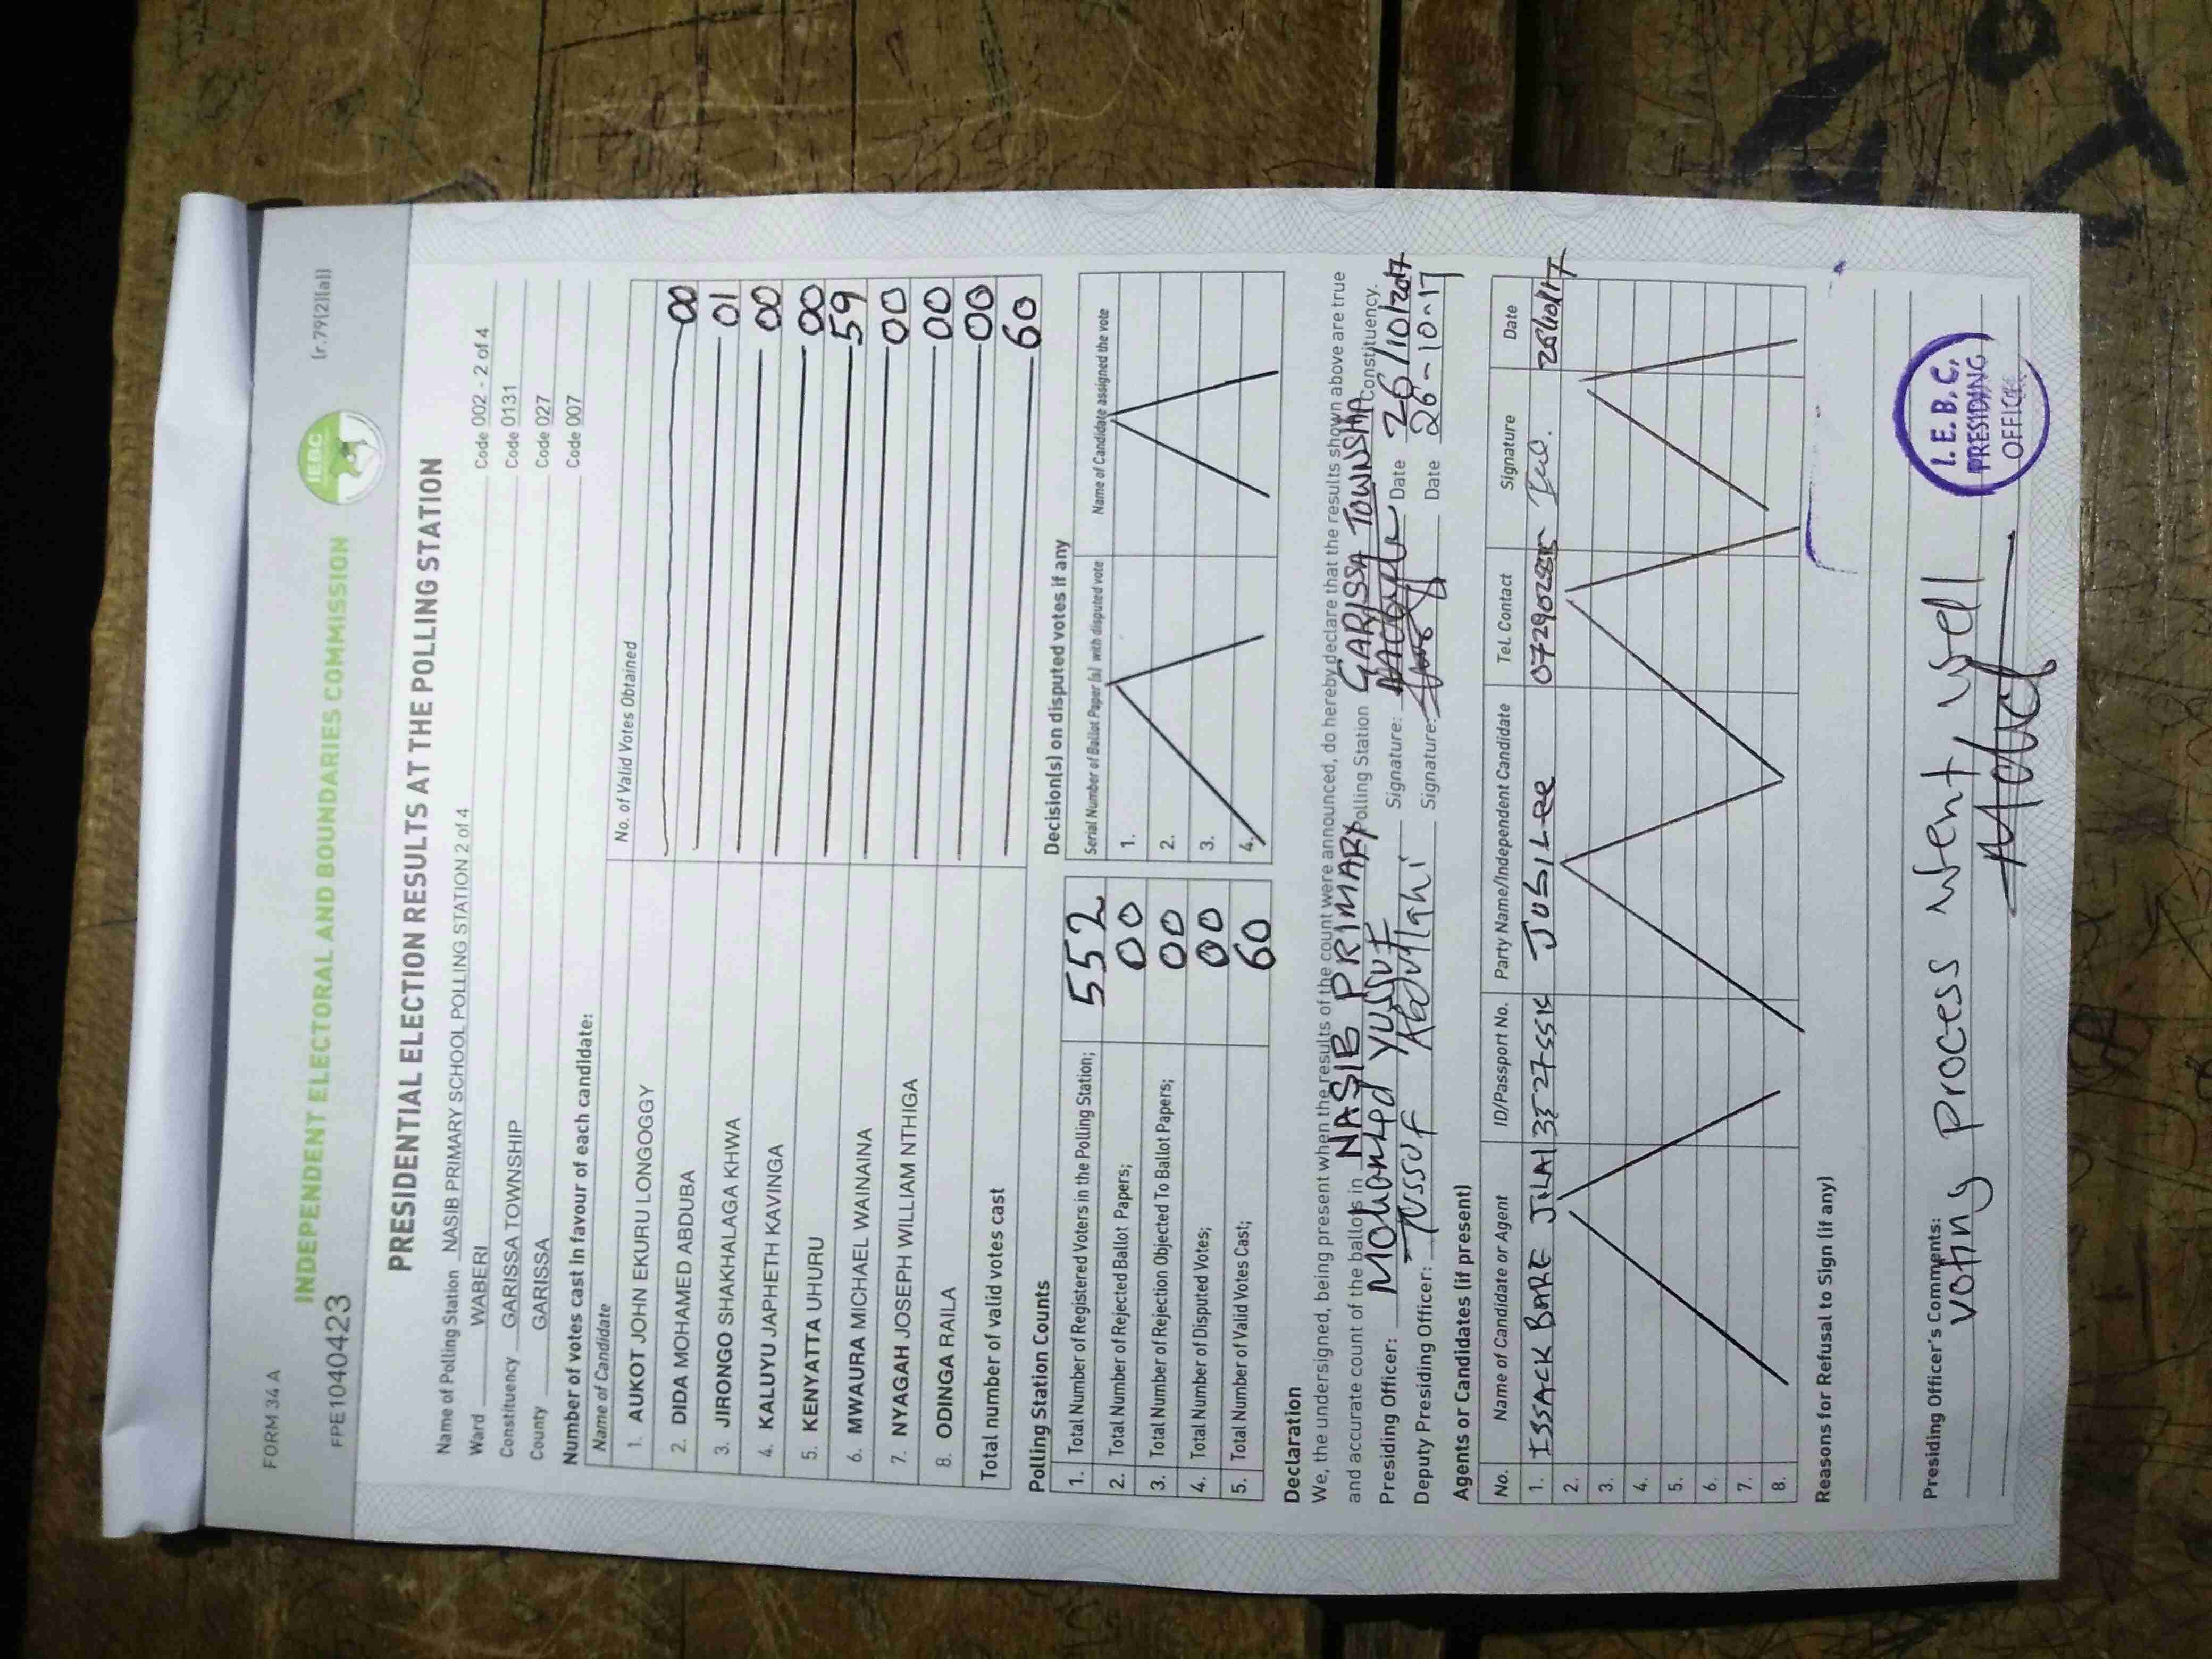 FORM 34 A
(r.79(2)(a))
IEBC
INDEPENDENT ELECTORAL AND BOUNDARIES COMMISSION
FPE1040423
PRESIDENTIAL ELECTION RESULTS AT THE POLLING STATION
Name of Polling Station NASIB PRIMARY SCHOOL POLLING STATION 2 of 4 Code 002 - 2 of 4
Ward WABERI Code 0131
Constituency GARISSA TOWNSHIP Code 027
County GARISSA Code 007
Number of votes cast in favour of each candidate:
Name of Candidate No. of Valid Votes Obtained
1. AUKOT JOHN EKURU LONGOGGY 00
2. DIDA MOHAMED ABDUBA 01
3. JIRONGO SHAKHALAGA KHWA 00
4. KALUYU JAPHETH KAVINGA 00
5. KENYATTA UHURU 59
6. MWAURA MICHAEL WAINAINA 00
7. NYAGAH JOSEPH WILLIAM NTHIGA 00
8. ODINGA RAILA 00
Total number of valid votes cast 60
Polling Station Counts
1. Total Number of Registered Voters in the Polling Station; 552
2. Total Number of Rejected Ballot Papers; 00
3. Total Number of Rejection Objected To Ballot Papers; 00
4. Total Number of Disputed Votes; 00
5. Total Number of Valid Votes Cast; 60
Decision(s) on disputed votes if any
Serial Number of Ballot Paper (s) with disputed vote Name of Candidate assigned the vote
1.
2.
3.
4.
Declaration
We, the undersigned, being present when the results of the count were announced, do hereby declare that the results shown above are true
and accurate count of the ballots in NASIB PRIMARY Polling Station GARISSA TOWNSHIP Constituency.
Presiding Officer: Mohamed YUSSUF Signature: Date 26/10/2017
Deputy Presiding Officer: Yussuf Abdullahi Signature: Date 26-10-17
Agents or Candidates (if present)
No. Name of Candidate or Agent ID/Passport No. Party Name/Independent Candidate Tel. Contact Signature Date
1. ISSACK BARE JILAI JUBILee 26/10/17
2.
3.
4.
5.
6.
7.
8.
Reasons for Refusal to Sign (if any)
Presiding Officer's Comments:
Voting process went well
I.E.B.C.
PRESIDING
OFFICER